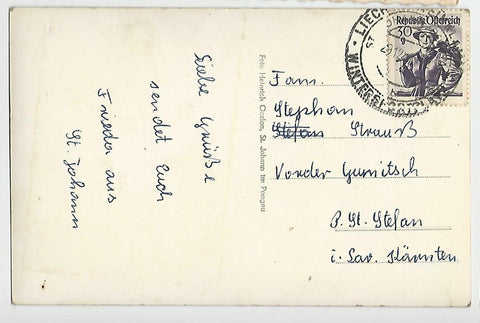 Liebe Grüße
sendet Euch
Frieda aus
St. Johann
Foto Heinrich St. Johann im Pongau
Republik Österreich
30
g
Fam.
Stephan
Stefan Strauß
Vorder Gumitsch
P. St. Stefan
i. Lav. Kärnten